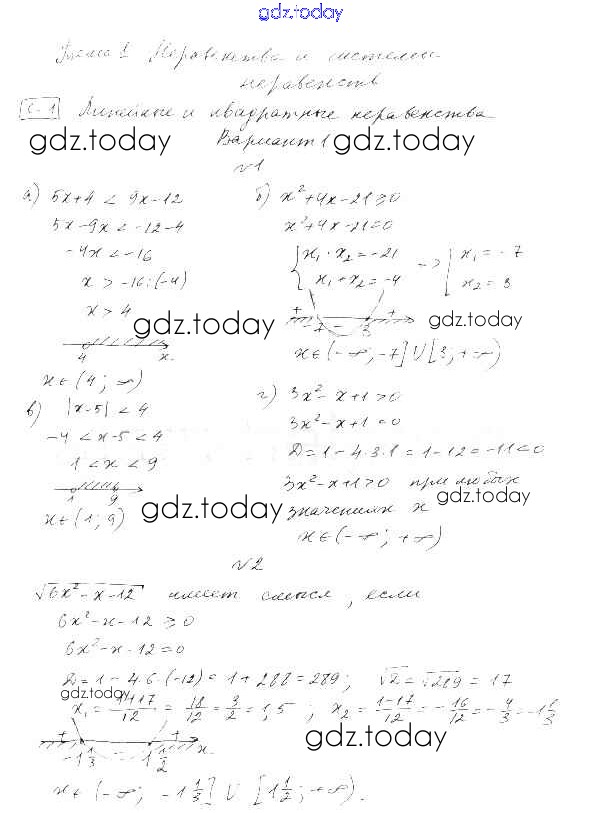 gdz.today
Тема 1 Неравенства и системы
неравенств
С-1 Линейные и квадратные неравенства
gdz.today Вариант 1 gdz.today
№1
а) 5x+4 < 9x-12
5x-9x < -12-4
-4x < -16
x > -16:(-4)
x > 4
gdz.today
4 x
x∈(4; ∞)
б) x²+4x-21≥0
x²+4x-21=0
{ x₁·x₂=-21 x₁+x₂=-4 => [ x₁=-7 x₂=3
gdz.today
+ -7 - 3 +
x∈(-∞; -7]∪[3; +∞)
в) |x-5| < 4
-4 < x-5 < 4
1 < x < 9
1 9
x∈(1; 9)
gdz.today
г) 3x²-x+1>0
3x²-x+1=0
Д=1-4·3·1=1-12=-11<0
3x²-x+1>0 при любых
gdz.today
значениях x
x∈(-∞; +∞)
№2
√6x²-x-12 имеет смысл, если
6x²-x-12≥0
6x²-x-12=0
Д=1-4·6·(-12)=1+288=289; √Д=√289=17
gdz.today
x₁=1+17/12=18/12=3/2=1,5; x₂=1-17/12=-16/12=-4/3=-1 1/3
+ -1 1/3 - 1 1/2 + x
gdz.today
x∈(-∞; -1 1/3]∪[1 1/2; +∞).